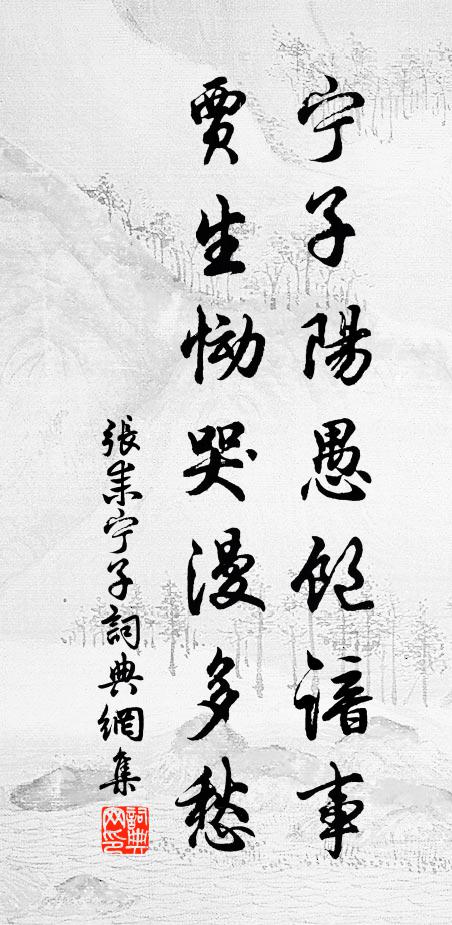 宁子陽愚飽諳事
賈生慟哭漫多愁
張耒宁子詞典網集
詞典
网印